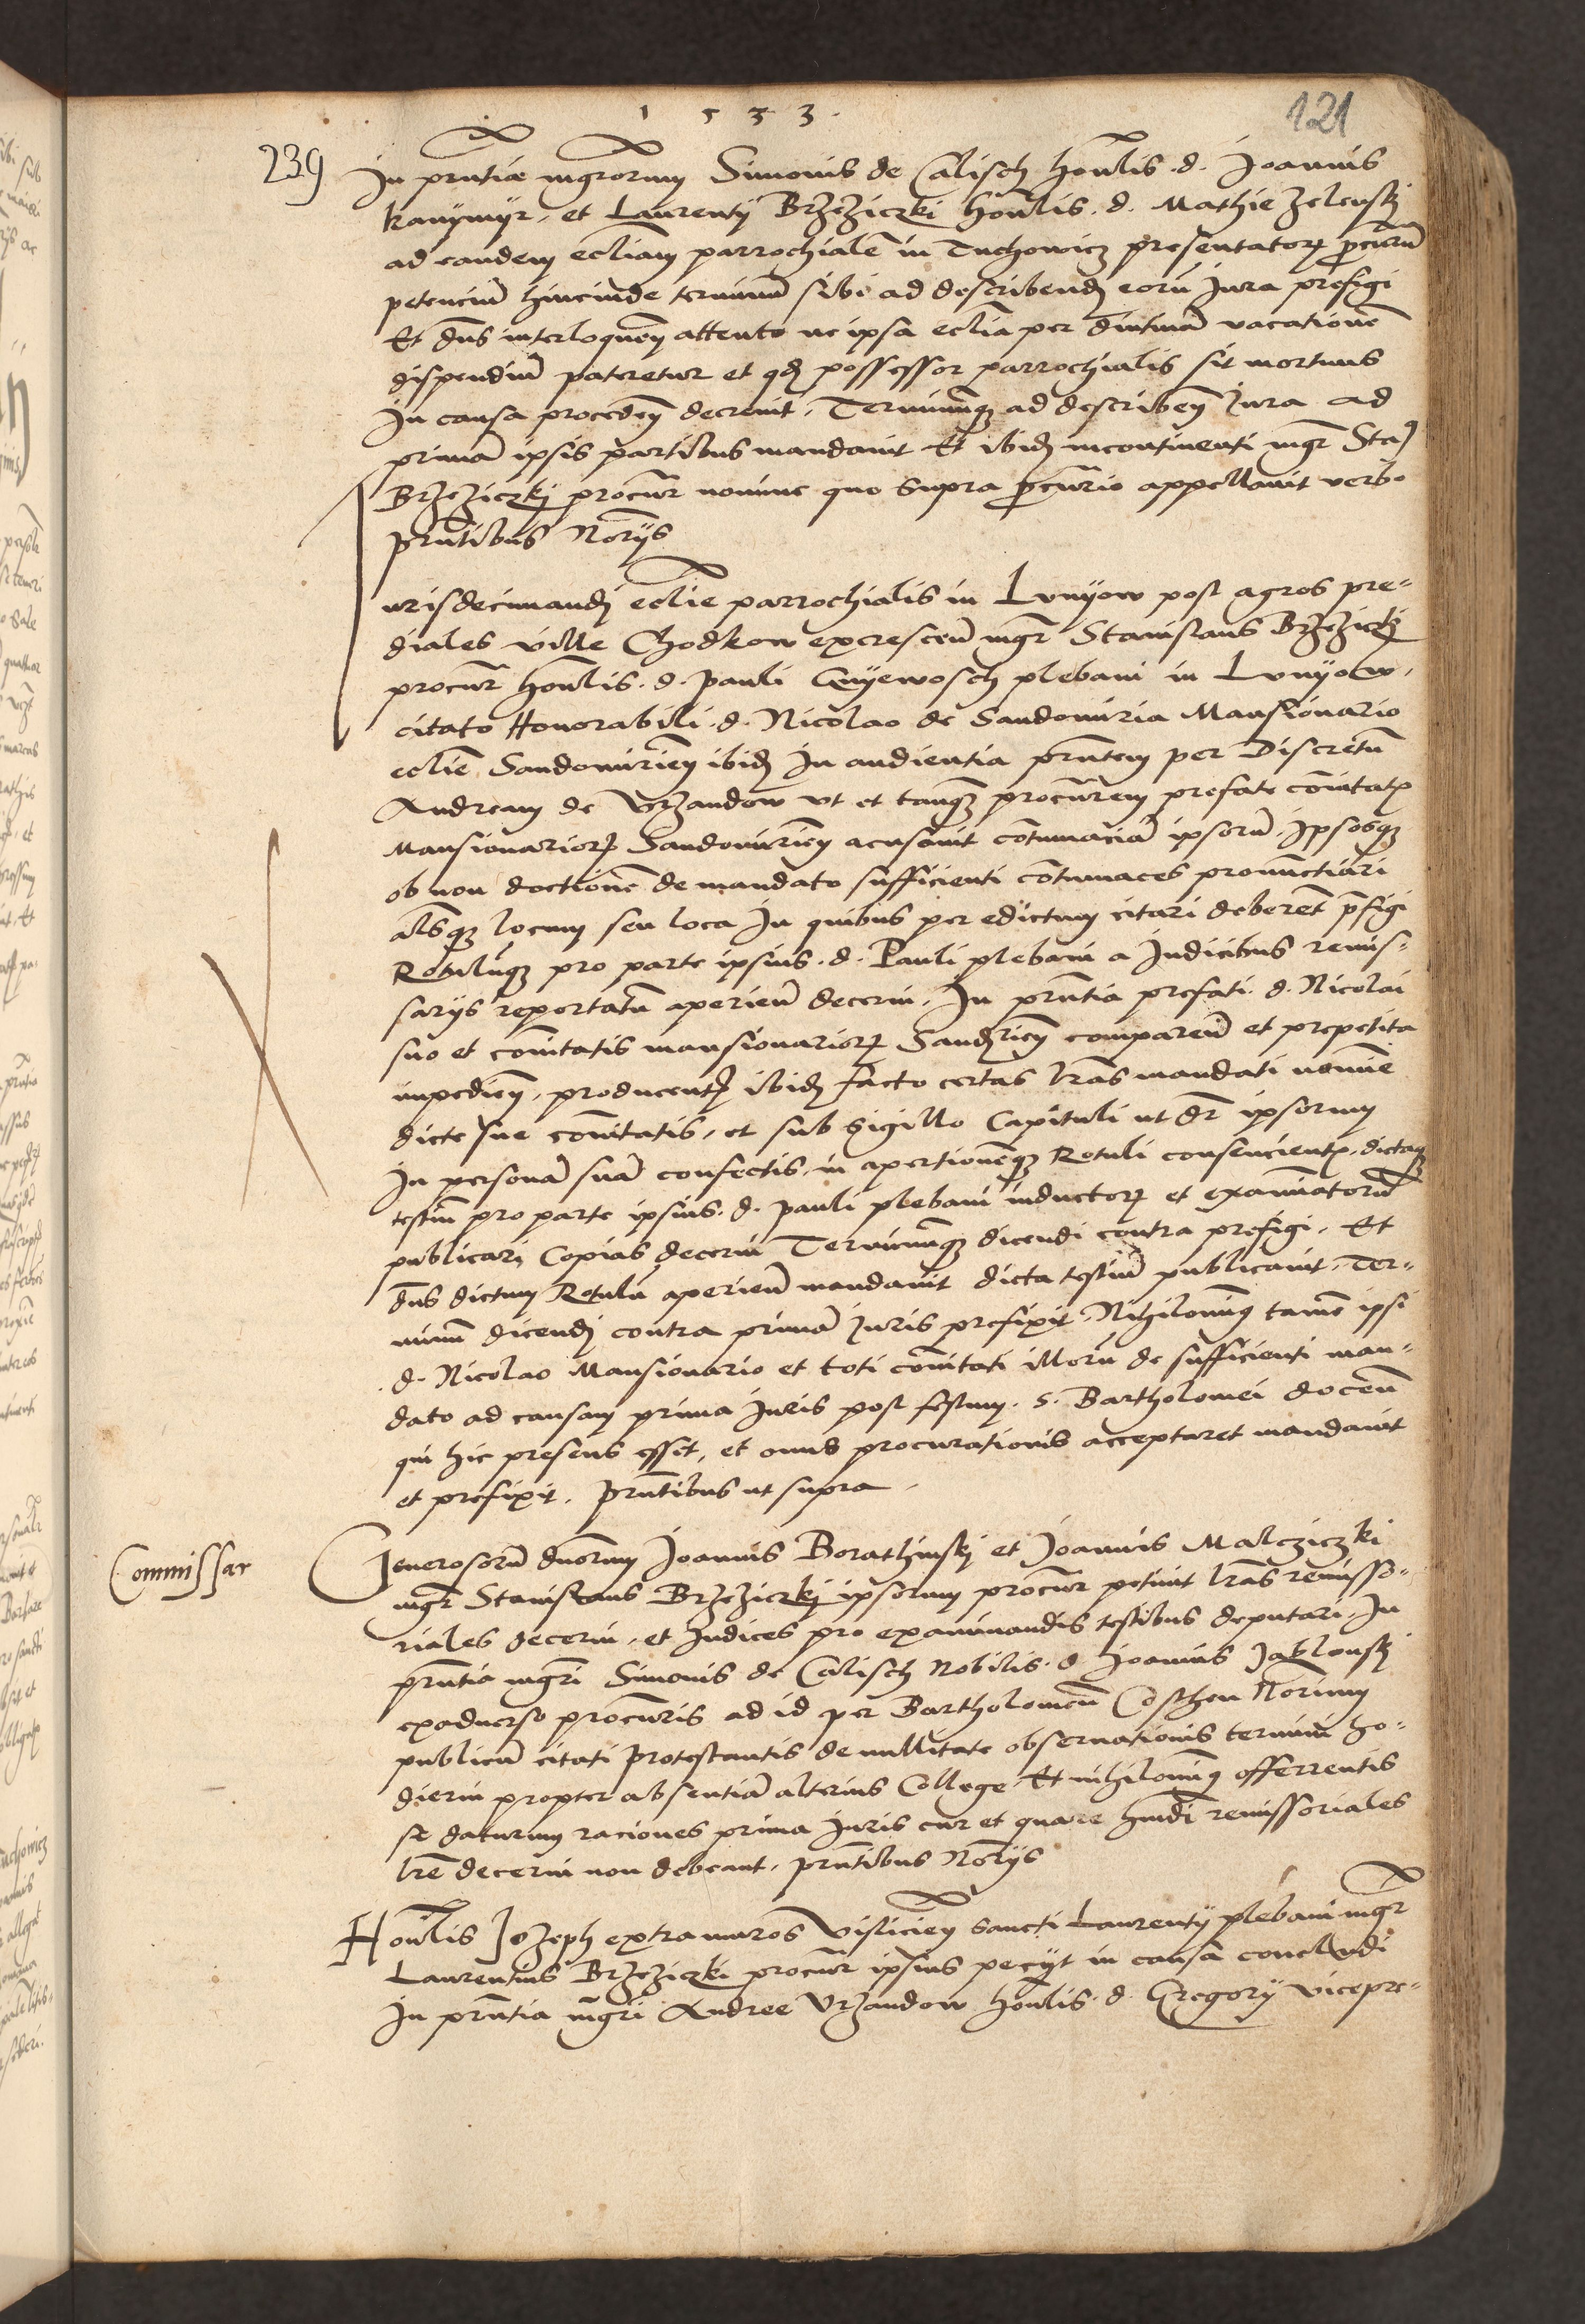 1533.
121
239
In pntia mgrorum Simonis de Calisch honlis. d. Joannis
kanymyr, et Laurentij Brzeziczki honlis. d. Mathie Zelensky
ad eandem eccliam parrochialē in Tuchowicz presentator procurm
petenciū hincinde terminū sibi ad describend eorū Jura prefigi
Et dns interloquen attento ne ipsa ecclia per diutinā vacationē
dispendiū pateretur et qd possessor parrochialis sit mortuus
In causa proceden decrevit. Terminumq ad describen Jura ad
primā ipsis partibus mandavit Et ibid incontinenti mgr Sta
Brzeziczkj procur nomine quo supra procurio appellavit verbo
prntibus Norijs
urisdecimandi ecclie parrochialis in Lvnyow post agros pre-
diales ville Chodkow excrescen mgr Stanislaus Brzeziczkj
procur honlis. d. Pauli Gnyewosch plebani in Lvnyow,
citato Honorabili. d. Nicolao de Sandomiria Mansionario
ecclie Sandomirien ibid In audientia prntem per Discretū
Andream de Vrzandow ut et tanq procurem prefate cōitatis
Mansionarior Sandomirien acusavit cōtumaciā ipsorū. Ipsosq
ob non doctionē de mandato sufficienti cōtumaces pronunctiari
alsq locum seu loca In quibus per edictum citari deberēt prfigi
Rotulūq pro parte ipsius. d. Pauli plebani a Judicibus remis-
sarijs reportatū aperiend decerni. In prntia prefati. d. Nicolai
suo et cōitatis mansionarior Sandrien comparen et prepetita
impedien, producentis ibid facto certas lras mandati nomine
dicte sue cōitatis, et sub sigillo Capituli ut dr ipsorum
In personā suā confectis, in apertionemq Rotuli consencientis, dictaq
testiū pro parte ipsius. d. Pauli plebani inductor et examinatorū
publicari Copias decerni Terminumq dicendi contra prefigi. Et
dns dictum Rotulū aperiend mandavit dicta testiū publicavit. Ter-
minū dicendi contra primā Juris prefixit. Nihilominus tamē ipsi
d. Nicolao Mansionario et toti cōitati illorū de sufficienti man-
dato ad causam prima Juris post festum. S. Bartholomei docend
qui hic presens esset, et onus procurationis acceptaret mandavit
et prefixit. Prntibus ut supra.
Commissar
Generosorū dnorum Joannis Borathinskj et Joannis Malcziczki
mgr Stanislaus Brzeziczkj ipsorum procur petiuit lras remisso-
riales decerni, et Judices pro examinandis testibus deputari. In
prntia mgri Simonis de Calisch Nobilis. d Joannis Jablonskj
exadverso procuris ad id per Bartholomeū Coschen Norium
publicū citati Protestantis de nullitate observationis termini ho-
dierni propter absentiā alterius College. Et nihilominus offerrentis
se daturum raciones prima Juris cur et quare hmdi remissoriales
lre decerni non debeant, prntibus Norijs
Honlis Jozeph extra muros Visliciēn sancti Laurentij plebani mgr
Laurentius Brzeziczki procur ipsius pecijt in causa concludi
In prntia mgri Andree Vrzandow honlis. d. Gregorij vicepre-